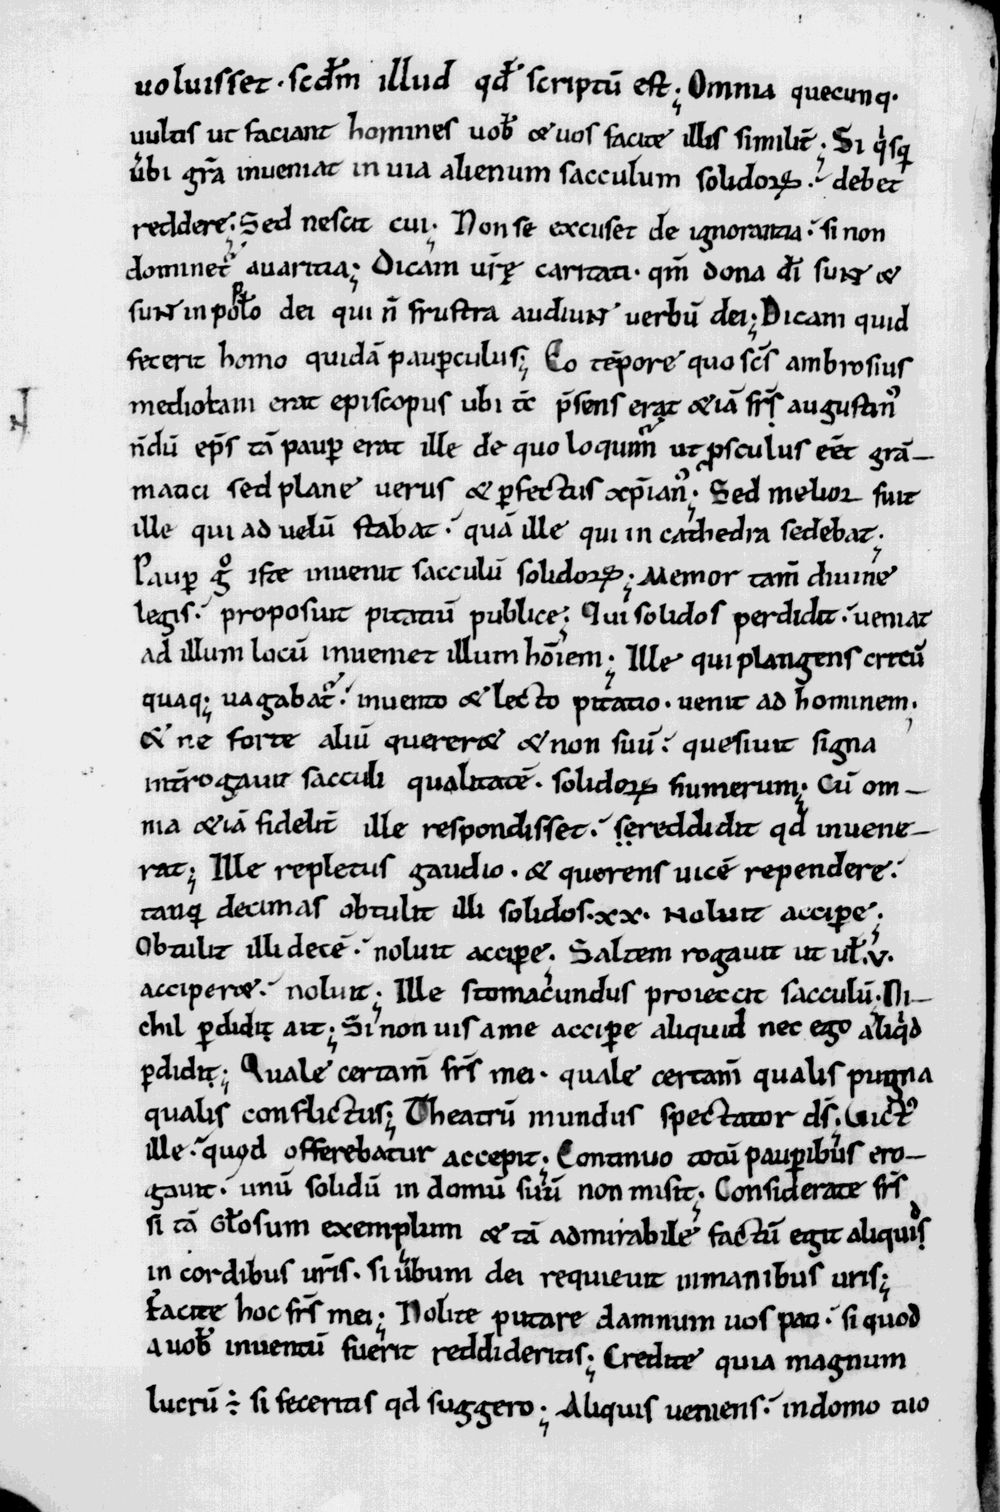 uoluisset · scdm̄ illud qđ scriptū est; Omnia quecunq·
uultis ut faciant homines uob̄ & uos facite illis similit̄; Si q̍sq
úbi grā inueniat in uia alienum sacculum solidoꝝ · debet
reddere; Sed nescit cui; Non se excuset de ignorantia · si non
dominet᷑ auaritia; Dicam ur̄ę caritati · qm̄ dona dī sunt &
sunt in pođo dei qui n̄ frustra audiunt uerbū dei; Dicam quid
fecerit homo quidā pauꝑculus; Eo tēpore quo scs̄ ambrosius
mediołani erat episcopus ubi tc̄ p̄sens erat & iā frs̄ augustin᷒
n̄dū ep̄s tā paup̱ erat ille de quo loquim᷑ ut ꝓsculus eēt grā-
matici sed plane uerus & ꝑfectus xp̄ian᷒; Sed melior fuit
ille qui ad uelū stabat · quā ille qui in cathedra sedebat;
Pauꝑ g̊ iste inuenit sacculū solidoꝝ; Memor tam̄ diuine
legis · proposuit pitatiū publice; Qui solidos perdidit · ueniat
ad illum locū inueniet illum hōiem; Ille qui plangens circū
quaq; uagabat᷑ · inuento & lecto pitatio · uenit ad hominem;
& ne forte aliū quereret & non suū · quesiuit signa
int̄rogauit sacculi qualitatē · solidoꝝ numerum; Cū om-
nia & iā fidelit̄ ille respondisset · sereddidit qđ inuene-
rat; Ille repletus gaudio · & querens uicē rependere ·
tanq̱ decimas obtulit illi solidos · xx · Noluit accipe;
Obtulit illi decē · noluit accipe; Saltem rogauit ut uł · v ·
acciperet · noluit; Ille stomacundus proiecit sacculū · Ni-
chil ꝑdidit ait; Si non uis a me acciꝑe aliquid nec ego aliq̍d
ꝑdidit; Quale certam̄ frs̄ mei · quale certam̄ qualis pugna
qualis conflictus; Theatrū mundus spectator ds̄; Uict᷒
ille · quod offerebatur accepit; Continuo totū pauꝑibus ero-
gauit · unū solidū in domū suā non misit; Considerate frs̄
si tā głosum exemplum & tā admirabile factū egit aliquid
in cordibus ur̄is · si úbum dei requieuit in manibus ur̄is;
facite hoc frs̄ mei; Nolite putare damnum uos pati · si quod
a uob̄ inuentū fuerit reddideritis; Credite quia magnum
lucrū ÷ si feceritis qđ suggero; Aliquis ueniens · in domo tuo